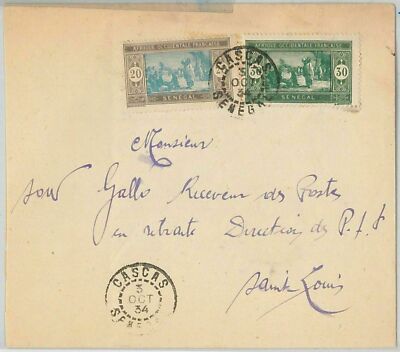 AFRIQUE OCCIDENTALE FRANÇAISE AFRIQUE OCCIDENTALE FRANÇAISE
20 30 30
SENEGAL SENEGAL
CASCAS
3
OCT
SENEGAL
Monsieur
Sow Gallo Receveur des Postes
en retraite Direction des P.T.T
Saint Louis
CASCAS
3
OCT
34
SENEGAL